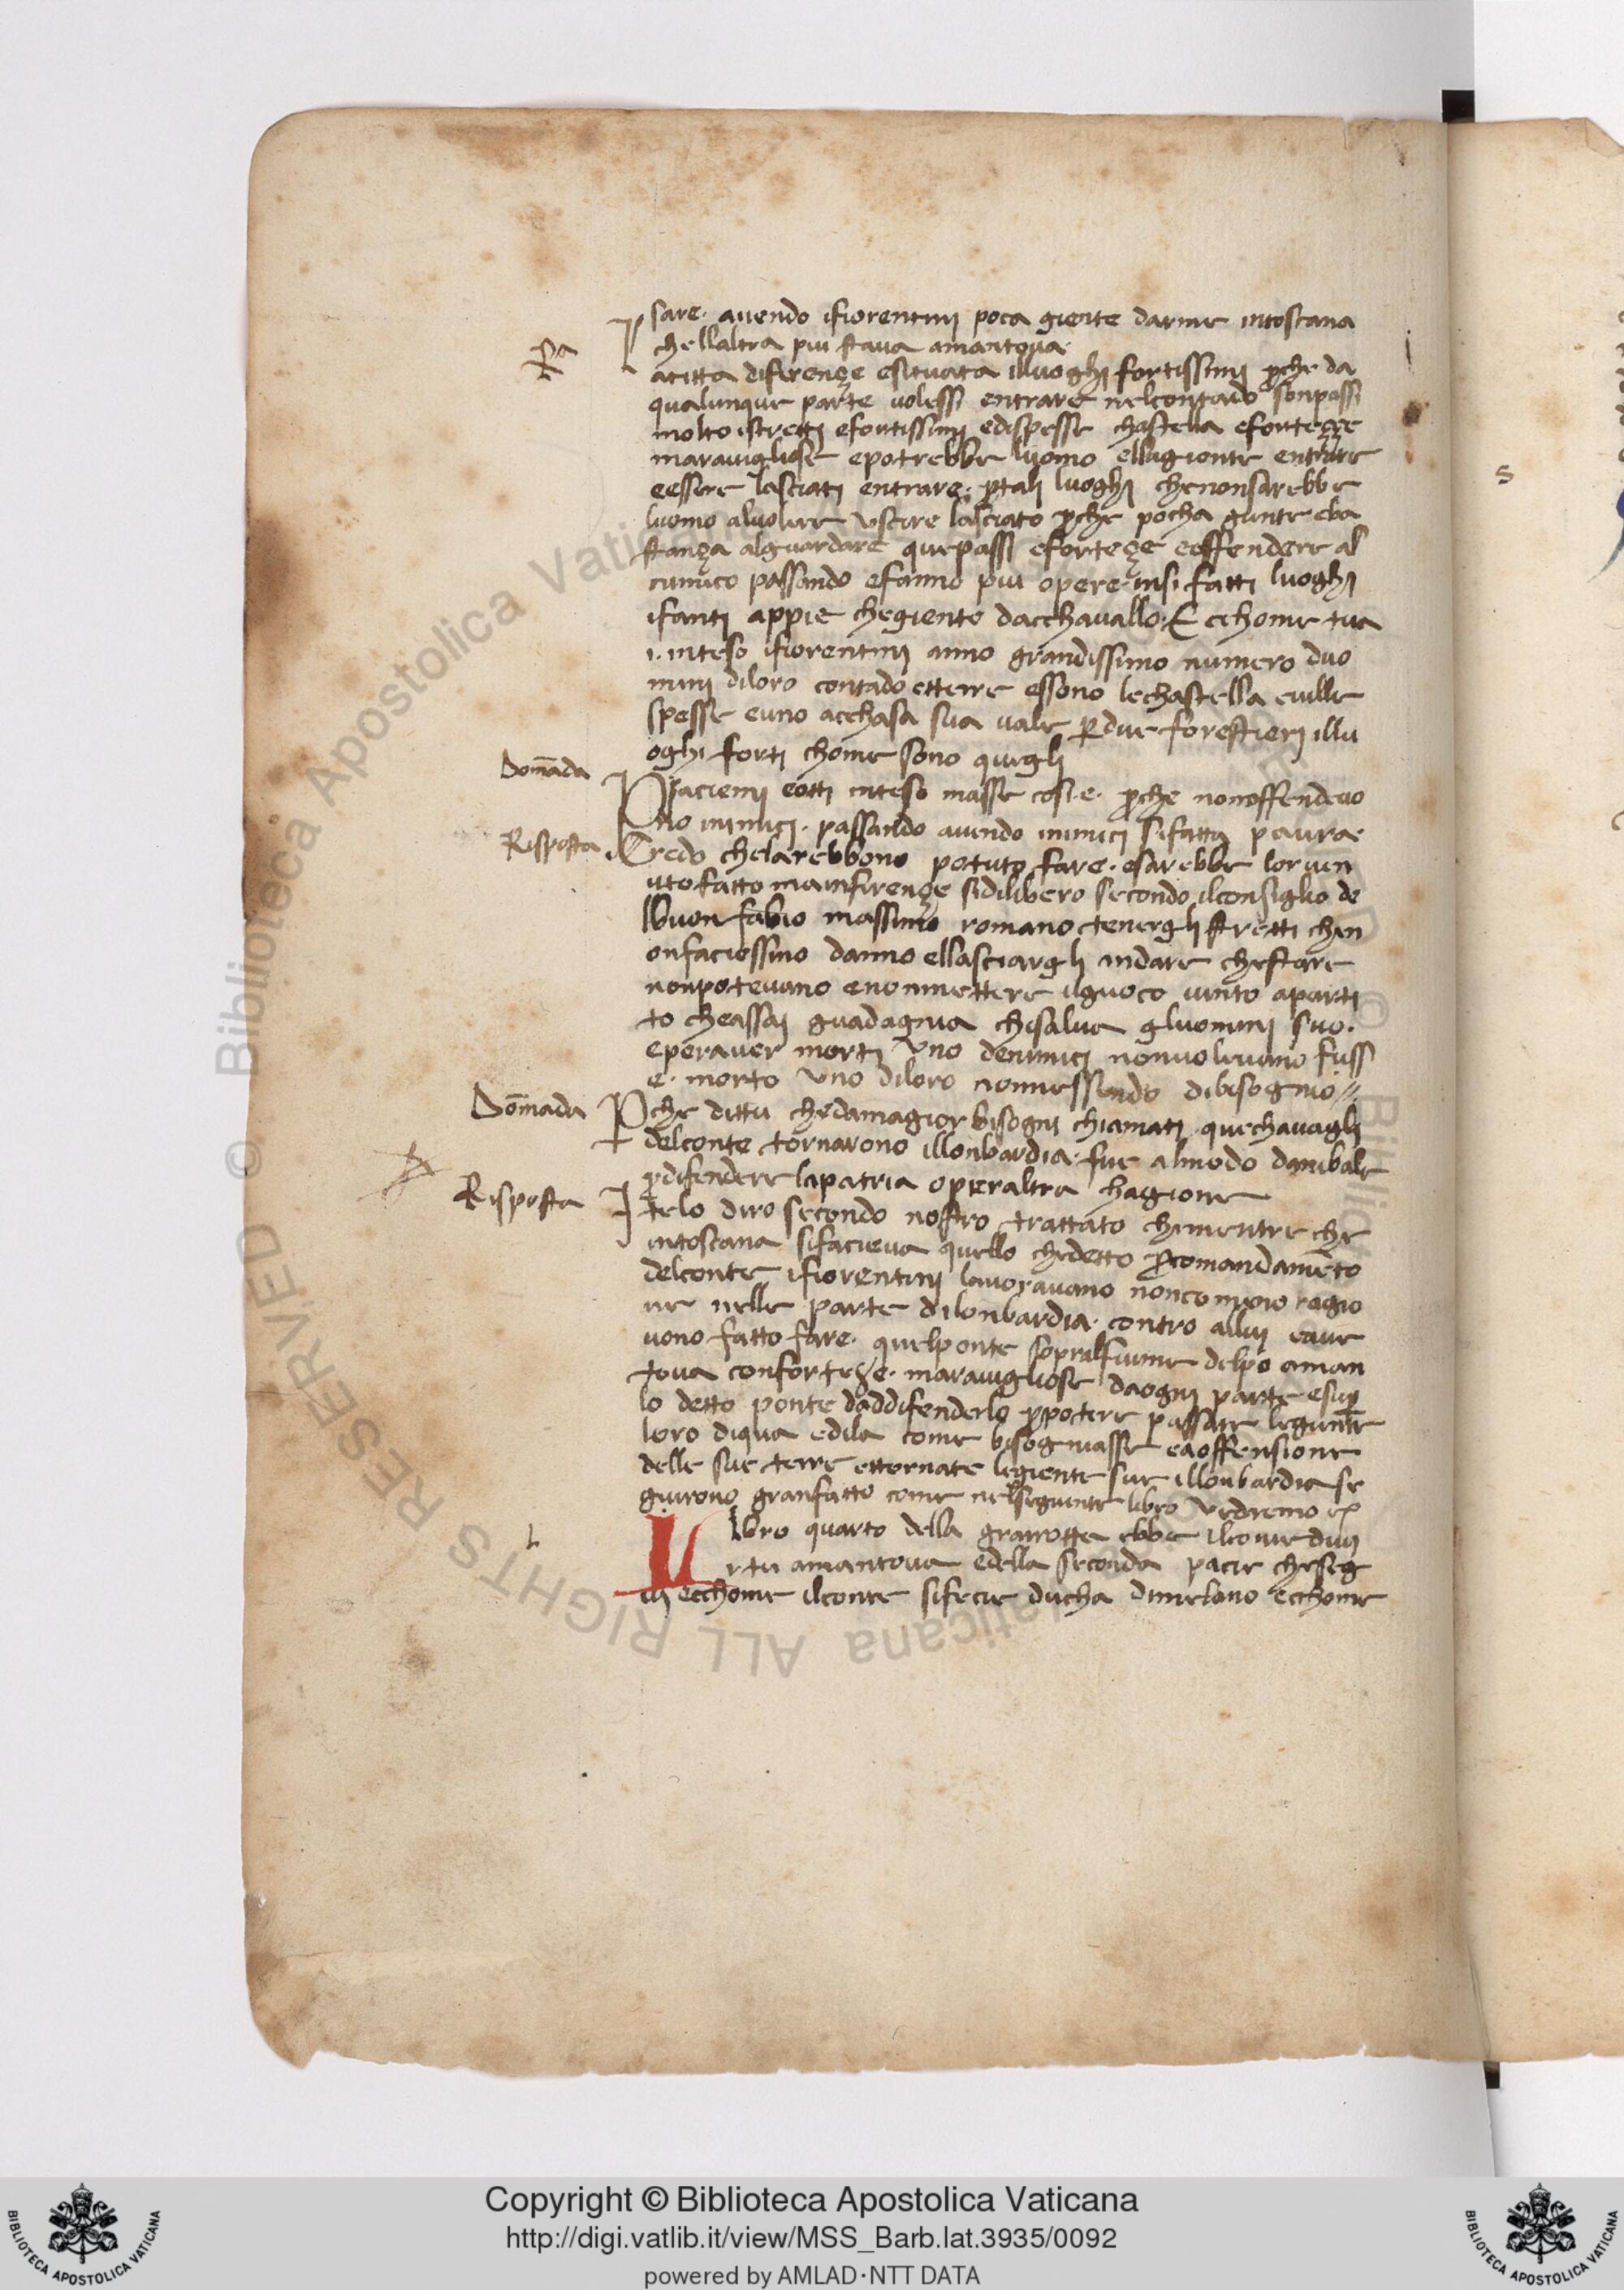 sare. avendo ifiorentinj poca giente darme intoscana
chellaltra piu stava amantova.
Ra
acitta difirençe esituata illuoghj fortissimj perche da
qualunque parte volessi entrare nelcontado sonpassi
molto istrettj efortissimj edispesse chastella eforteççe
maravigliose epotrebbe luomo ellagiente entrare
eessere lasciatj entrare. pertalj luoghj chenonsarebbe
luomo alvolere uscire lasciato perche pocha giente eba
stança alguardare quepassi eforteçe eoffendere al
nimico passando efanno piu opere insifatti luoghj
ifanti appie chegiente dacchavallo. E cchome tua
i. inteso ifiorentinj anno grandissimo numero duo
minj diloro contado etterre essono lechastella eville
spesse euno acchasa sua vale per due forestierj illu
oghi forti chome sono quegli
Domāda
Piaciemj eotti inteso masse cosi e. perche nonoffendevo
no inimici. passando avendo inimici sifatta paura.
Risposta
Credo chelarebbono potuto fare. esarebbe lorven
uto fatto mainfirençe sidilibero secondo ilconsiglio de
lbuon fabio massimo romano tenerglj stretti chen
onfaciessino danno ellasciarglj andare chestare
nonpotevano enonmettere ilguoco vinto aparti
to cheassaj guadagnia chisalva gluominj suo.
eperaver mortj uno denimicj nonvolevano fuss
e. morto uno diloro nonnessendo dibisognio//
Domāda
Perche dittu chedamagior bisogni chiamati quechavaglj
delconte tornarono illonbardia. fue almodo danibale
perdifendere lapatria operaltra chagione
Risposta
I telo diro secondo nostro trattato chimentre che
intoscana sifacieva quello chedetto percomandamēto
delconte ifiorentinj lavoravano noncomeno ragio
ne nelle parte dilonbardia. contro allui eave
vono fatto fare. quelponte sopralfiume delpo aman
tova conforteze. maravigliose daognj parte esup
lo detto ponte daddifenderlo perpotere passare legiente
loro diqua edila come bisogniasse eaoffensione
delle sue terre ettornate legiente sue illonbardia se
guirono granfatto come nelseguente libro vedremo
L
Libro quarto della granrotta ebbe ilconte
ertu amantova edella seconda pacie cheseg
uj ecchome ilconte sifecie ducha dimelano ecchome
s
© Biblioteca Apostolica Vaticana ALL RIGHTS RESERVED
Copyright © Biblioteca Apostolica Vaticana
http://digi.vatlib.it/view/MSS_Barb.lat.3935/0092
powered by AMLAD·NTT DATA
BIBLIOTECA APOSTOLICA VATICANA
BIBLIOTECA APOSTOLICA VATICANA